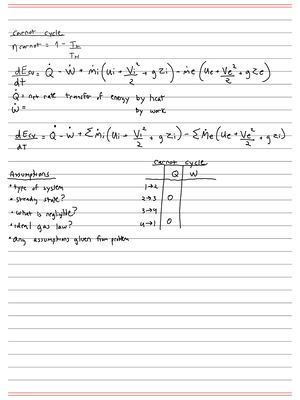 carnot cycle
η carnot = 1 - TL/TH
dEcv/dt = Q̇ - Ẇ + ṁi (ui + Vi²/2 + gzi) - ṁe (ue + Ve²/2 + gze)
Q̇ = net rate transfer of energy by heat
Ẇ = by work
dEcv/dt = Q̇ - Ẇ + Σ ṁi (ui + Vi²/2 + gzi) - Σ ṁe (ue + Ve²/2 + gzi)
carnot cycle
Q W
Assumptions
• type of system 1→2
• steady state? 2→3 0
• what is negligible? 3→4
• ideal gas law? 4→1 0
• any assumptions given from problem